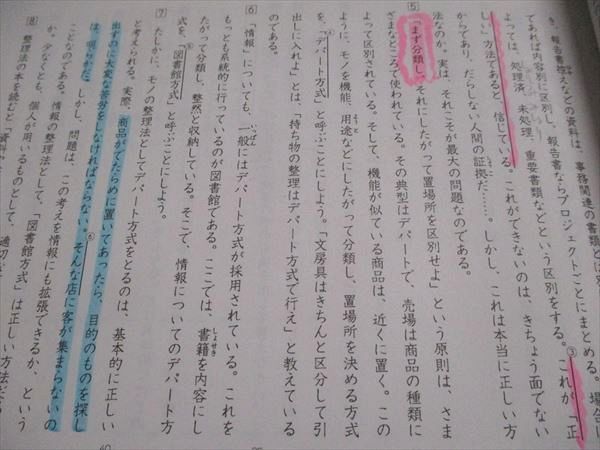 き、報告書控えなどの資料は、事務関連の書類とは別
であれば内容別に区別し、報告書ならプロジェクトごとにまとめる。場合に
よっては、処理済、未処理、重要書類などという区別をする。③これが「正
しい」方法であると、信じている。これができないのは、きちょう面でない
からであり、だらしない人間の証拠だ……。しかし、これは本当に正しい方
法なのか。実は、それこそが最大の問題なのである。
5 「まず分類し、それにしたがって置場所を区別せよ」という原則は、さま
ざまなところで使われている。その典型はデパートで、売場は商品の種類に
よって区別されている。そして、機能が似ている商品は、近くに置く。この
ように、モノを機能、用途などにしたがって分類し、置場所を決める方式
を、「デパート方式」と呼ぶことにしよう。「文房具はきちんと区分して引
出しに入れよ」とは、「持ち物の整理はデパート方式で行え」と教えている
のである。
6 「情報」についても、一般にはデパート方式が採用されている。これを
もっとも系統的に行っているのが図書館である。ここでは、書籍を内容にし
たがって分類し、整然と収納している。そこで、情報についてのデパート方
式を、「図書館方式」と呼ぶことにしよう。
7 たしかに、モノの整理法としてデパート方式をとるのは、基本的に正しい
と考えられる。実際、商品がでたらめに置いてあったら、目的のものを探し
出すのに大変な苦労をしなければならない。⑥そんな店に客が集まらないの
は、明らかだ。しかし、問題は、この考えを情報にも拡張できるか、という
ことなのである。情報の整理法として、「図書館方式」は正しい方法だろう
か。少なくとも、個人が用いるものとして、適切な
8 整理法の本を読むと、「資料
60